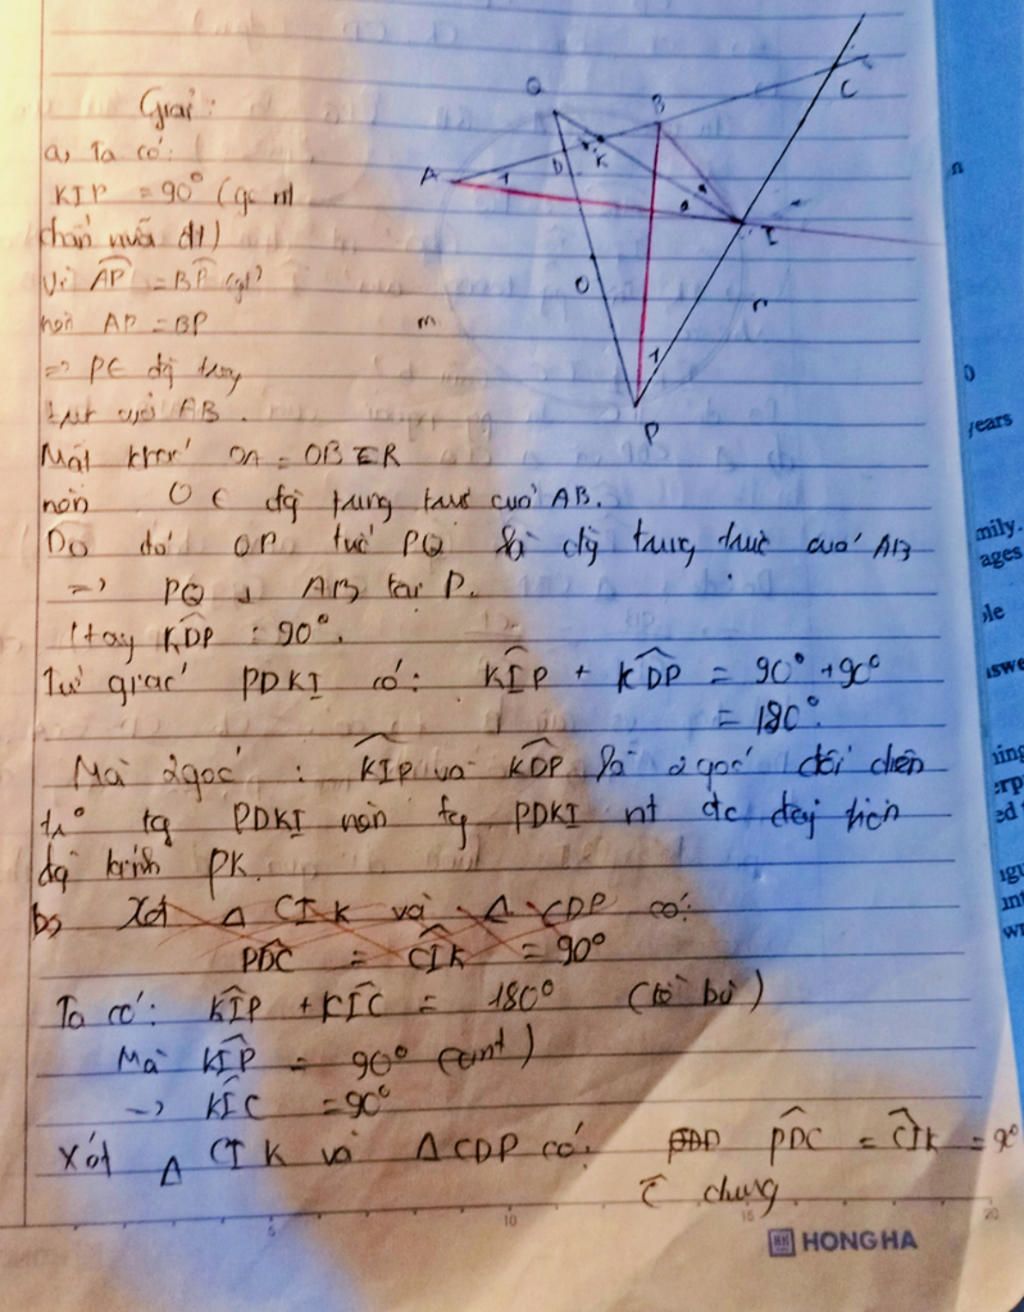 Giải:
a, Ta có:
KIP = 90° (góc nt
chắn nửa đt)
Vì AP = BP (gt)
nên AP = BP
=> P∈ đg trung
trực của AB.
Mặt khác OA = OB = R
nên O ∈ đg trung trực của AB.
Do đó OP tức PQ là đg trung trực của AB
=> PQ ⊥ AB tại P.
Hay KDP = 90°.
Tứ giác PDKI có: KIP + KDP = 90° + 90°
= 180°.
Mà 2 góc: KIP và KDP là 2 góc đối diện
tg PDKI nên tg PDKI nt đc
đg kính PK.
b, Xét Δ CIK và Δ CDP có:
PDC = CIK = 90°
Ta có: KIP + KIC = 180° (kề bù)
Mà KIP = 90° (cmt)
-> KIC = 90°
Xét Δ CIK và Δ CDP có: PDC = CIK = 90°
C chung
Q
B
C
A
1
D
K
I
O
m
n
1
P
n
0
years
mily.
ages
ple
nswe
ning
erp
ed
5
10
15
20
HH HONG HA